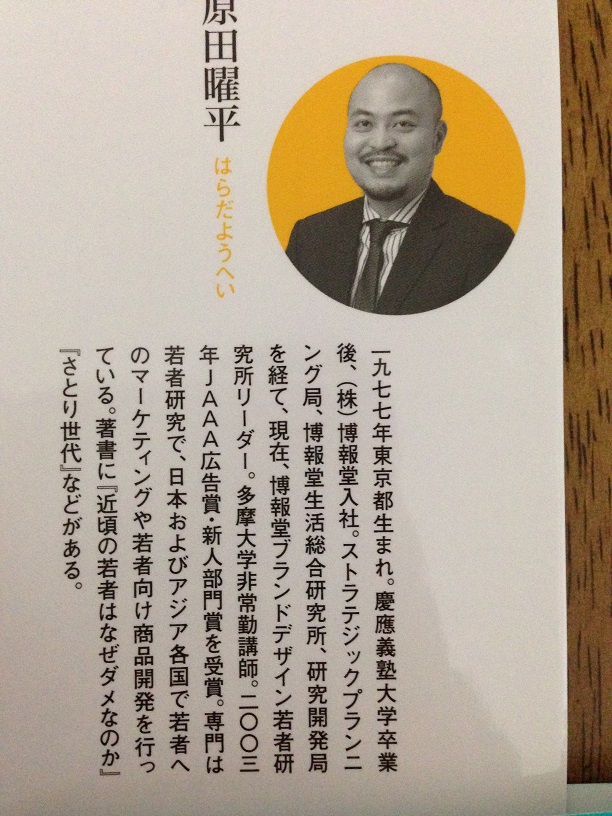 原田曜平
はらだようへい
一九七七年東京都生まれ。慶應義塾大学卒業
後、(株)博報堂入社。ストラテジックプランニ
ング局、博報堂生活総合研究所、研究開発局
を経て、現在、博報堂ブランドデザイン若者研
究所リーダー。多摩大学非常勤講師。二〇〇三
年JAAA広告賞・新人部門賞を受賞。専門は
若者研究で、日本およびアジア各国で若者へ
のマーケティングや若者向け商品開発を行っ
ている。著書に『近頃の若者はなぜダメなのか』
『さとり世代』などがある。